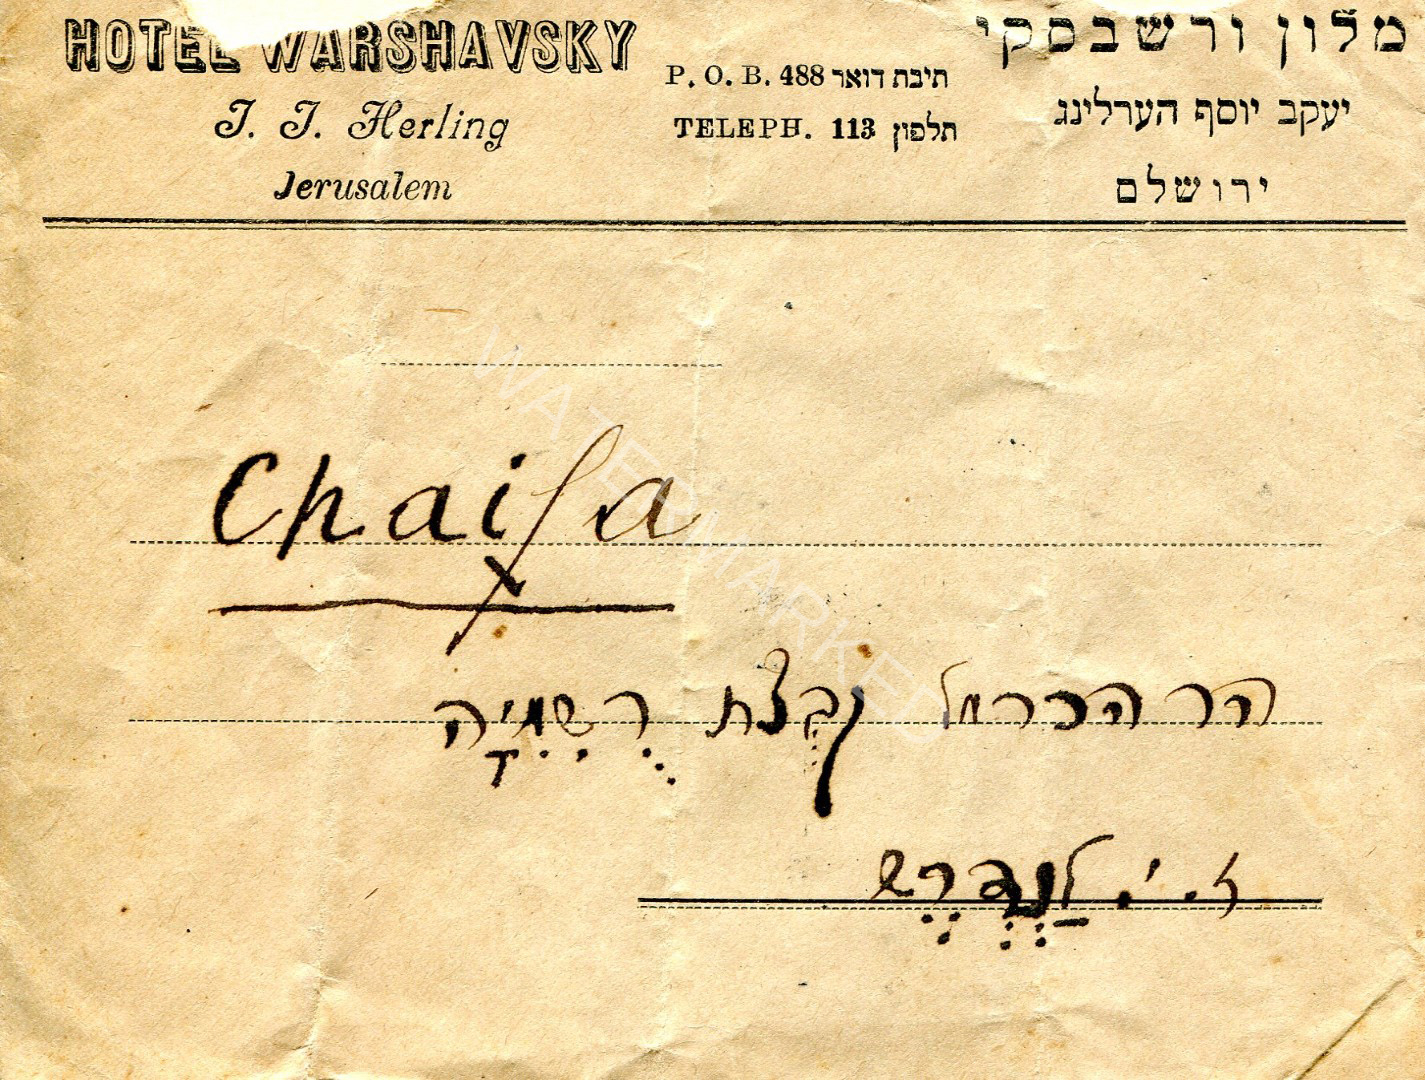 HOTEL WARSHAVSKY
J. J. Herling
Jerusalem
P. O. B. 488 תיבת דואר
TELEPH. 113 תלפון
מלון ורשבסקי
יעקב יוסף הערלינג
ירושלם
Chaifa
הר הכרמל קבצת רֻשְׁמִיָה
ז. י. לַנְדְרֶש
WATERMARKED